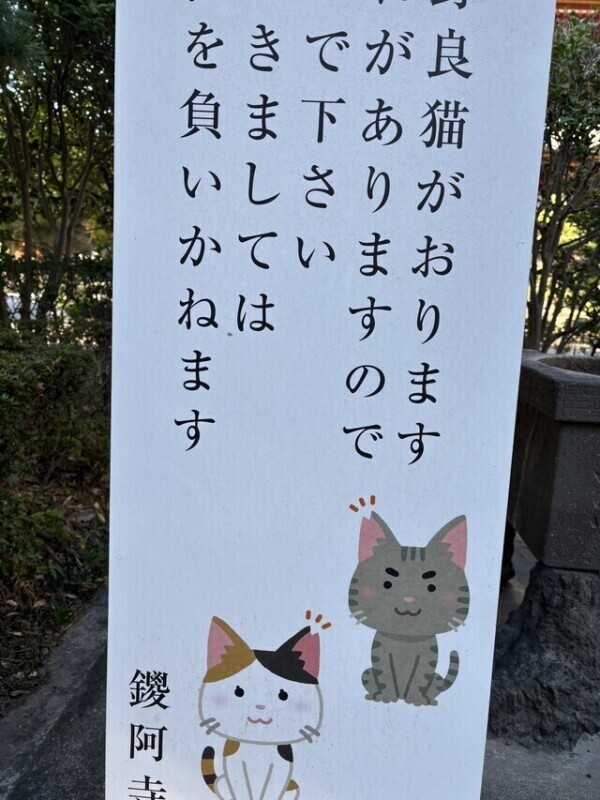 野良猫がおります
がありますので
で下さい
きましては
を負いかねます
鑁阿寺